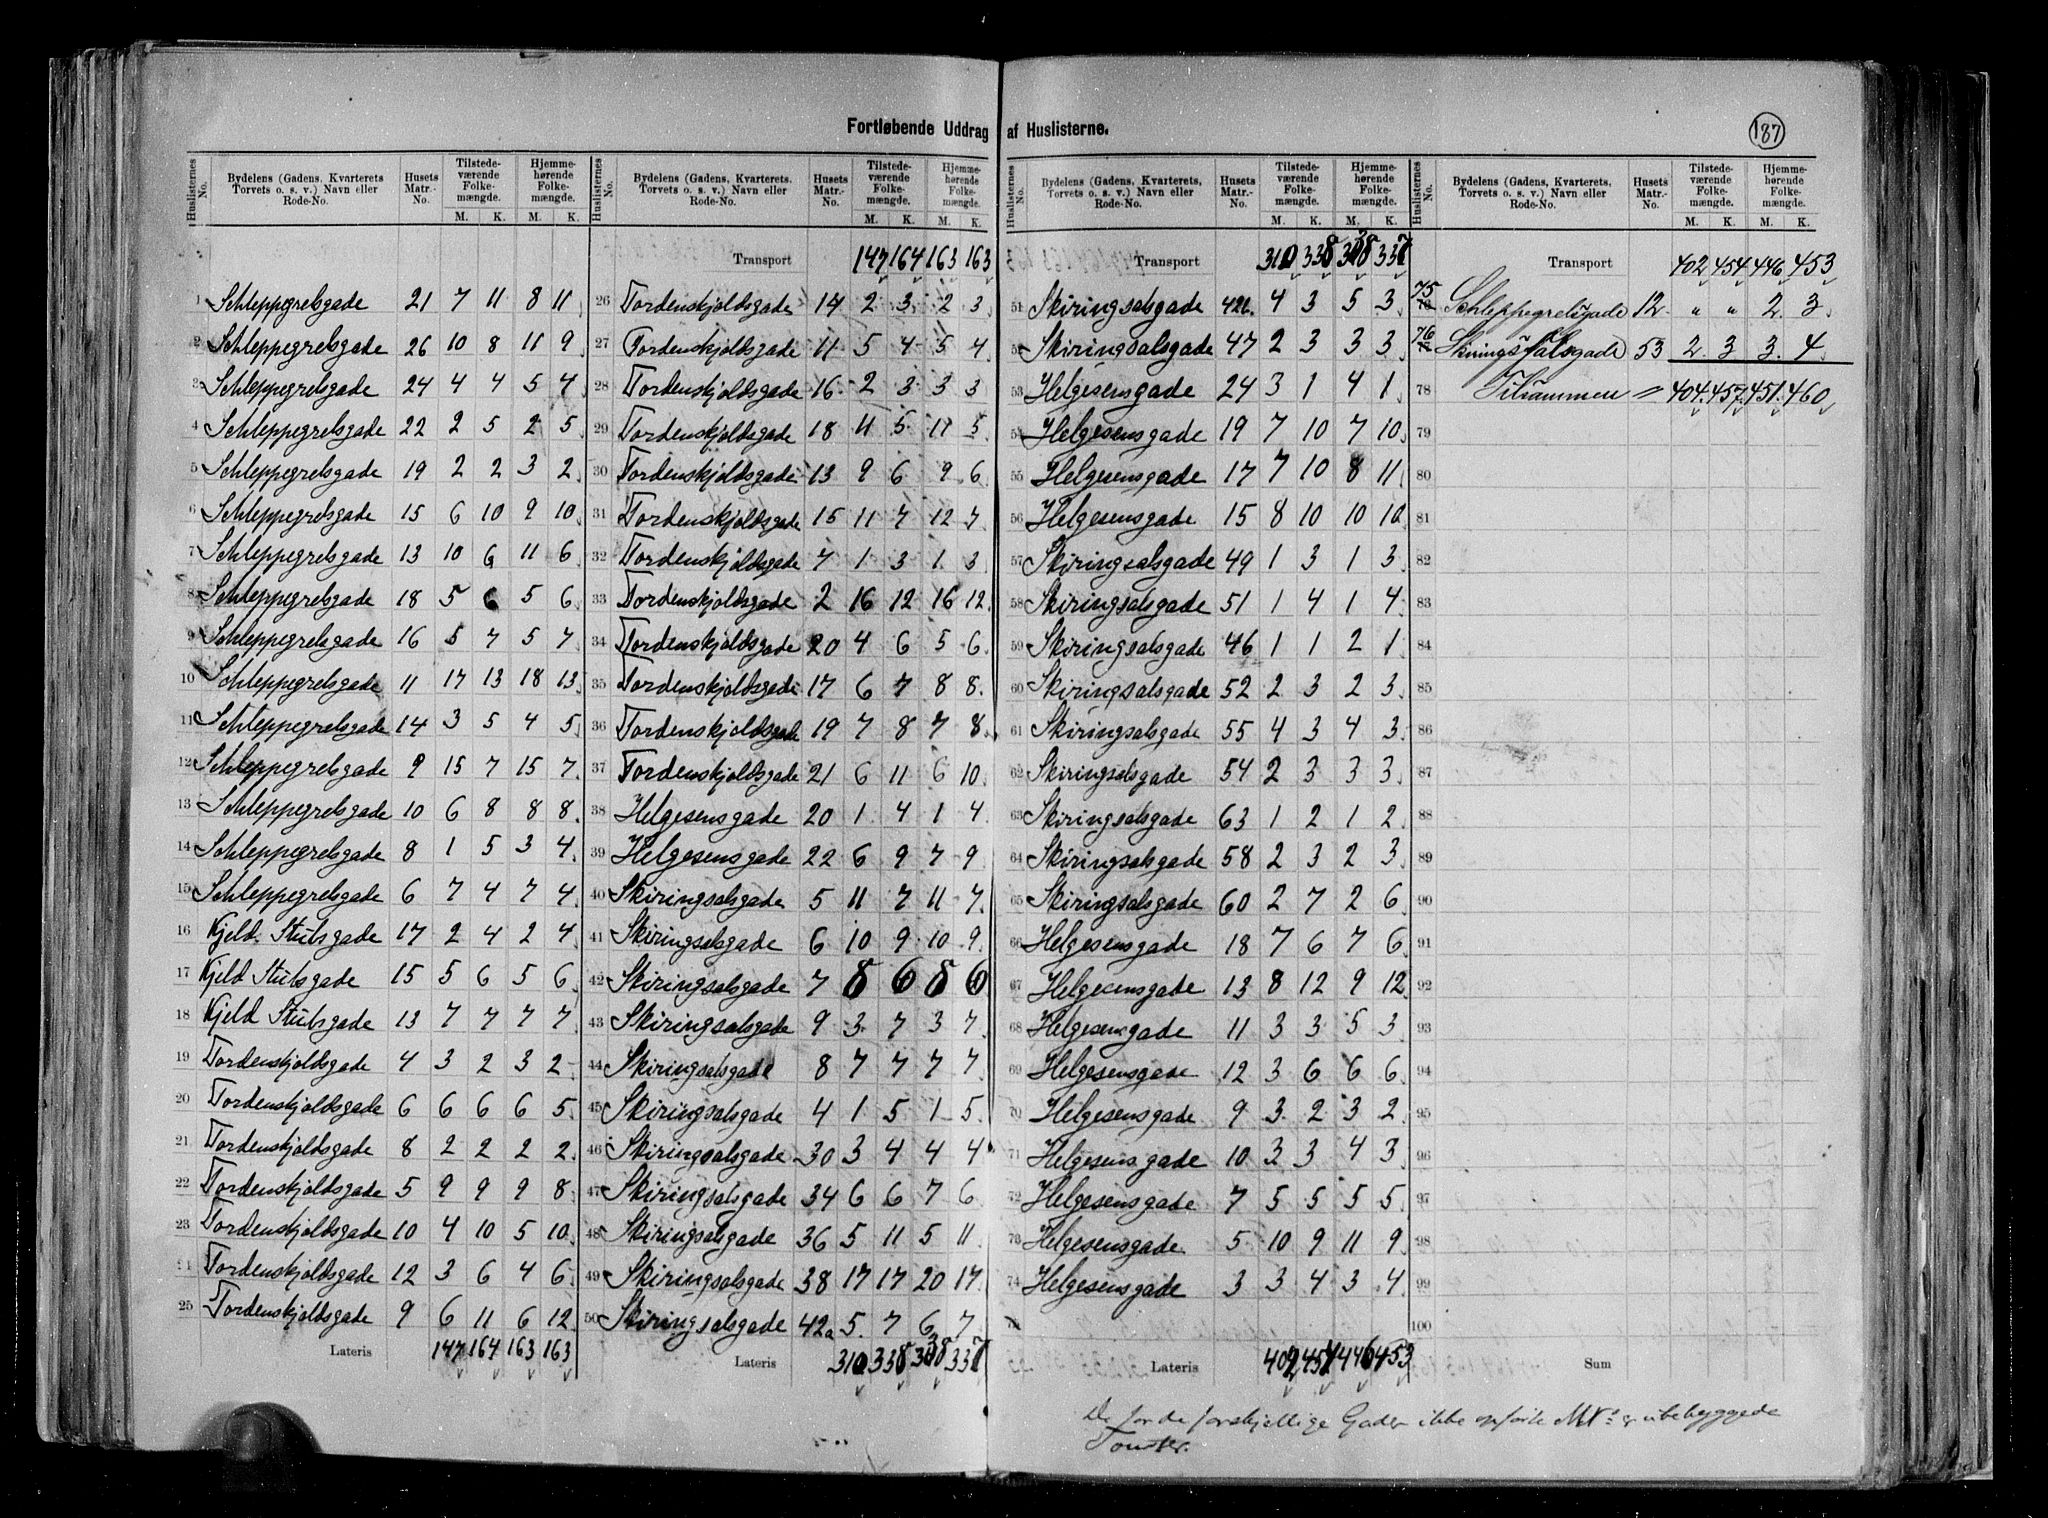 Fortløbende Uddrag af Huslisterne.
187
Huslisternes No. | Bydelens (Gadens, Kvarterets Torvets o. s. v.) Navn eller Rode-No. | Husets Matr.-No. | Tilstedeværende Folkemængde. M. K. | Hjemmehørende Folkemængde. M. K.
1 Schleppegrelsgade 21 7 11 8 11
2 Schleppegrelsgade 26 10 8 11 9
3 Schleppegrelsgade 24 4 4 5 4
4 Schleppegrelsgade 22 2 5 2 5
5 Schleppegrelsgade 19 2 2 3 2
6 Schleppegrelsgade 15 6 10 9 10
7 Schleppegrelsgade 13 10 6 11 6
8 Schleppegrelsgade 18 5 6 5 6
9 Schleppegrelsgade 16 5 7 5 7
10 Schleppegrelsgade 11 17 13 18 13
11 Schleppegrelsgade 14 3 5 4 5
12 Schleppegrelsgade 9 15 7 15 7
13 Schleppegrelsgade 10 6 8 8 8
14 Schleppegrelsgade 8 1 5 3 4
15 Schleppegrelsgade 6 7 4 7 4
16 Kjeld Stubsgade 17 2 4 2 4
17 Kjeld Stubsgade 15 5 6 5 6
18 Kjeld Stubsgade 13 7 7 7 7
19 Tordenskjoldsgade 4 3 2 3 2
20 Tordenskjoldsgade 6 6 6 6 5
21 Tordenskjoldsgade 8 2 2 2 2
22 Tordenskjoldsgade 5 9 9 9 8
23 Tordenskjoldsgade 10 4 10 5 10
24 Tordenskjoldsgade 12 3 6 4 6
25 Tordenskjoldsgade 9 6 11 6 12
Lateris 147 164 163 163
Huslisternes No. | Bydelens (Gadens, Kvarterets Torvets o. s. v.) Navn eller Rode-No. | Husets Matr.-No. | Tilstedeværende Folkemængde. M. K. | Hjemmehørende Folkemængde. M. K.
Transport 147 164 163 163
26 Tordenskjoldsgade 14 2 3 2 3
27 Tordenskjoldsgade 11 5 4 5 4
28 Tordenskjoldsgade 16 2 3 3 3
29 Tordenskjoldsgade 18 11 5 11 5
30 Tordenskjoldsgade 13 9 6 9 6
31 Tordenskjoldsgade 15 11 7 12 7
32 Tordenskjoldsgade 7 1 3 1 3
33 Tordenskjoldsgade 2 16 12 16 12
34 Tordenskjoldsgade 20 4 6 5 6
35 Tordenskjoldsgade 17 6 7 8 8
36 Tordenskjoldsgade 19 7 8 7 8
37 Tordenskjoldsgade 21 6 11 6 10
38 Helgesensgade 20 1 4 1 4
39 Helgesensgade 22 6 9 7 9
40 Skiringsalsgade 5 11 7 11 7
41 Skiringsalsgade 6 10 9 10 9
42 Skiringsalsgade 7 8 6 8 6
43 Skiringsalsgade 9 3 7 3 7
44 Skiringsalsgade 8 7 7 7 7
45 Skiringsalsgade 4 1 5 1 5
46 Skiringsalsgade 30 3 4 4 4
47 Skiringsalsgade 34 6 6 7 6
48 Skiringsalsgade 36 5 11 5 11
49 Skiringsalsgade 38 17 17 20 17
50 Skiringsalsgade 42a 5 7 6 7
Lateris 310 338 338 337
Huslisternes No. | Bydelens (Gadens, Kvarterets, Torvets o. s. v.) Navn eller Rode-No. | Husets Matr.-No. | Tilstedeværende Folkemængde. M. K. | Hjemmehørende Folkemængde. M. K.
Transport 310 338 338 337
51 Skiringsalsgade 42b. 4 3 5 3
52 Skiringsalsgade 47 2 3 3 3
53 Helgesensgade 24 3 1 4 1
54 Helgesensgade 19 7 10 7 10
55 Helgesensgade 17 7 10 8 11
56 Helgesensgade 15 8 10 10 10
57 Skiringsalsgade 49 1 3 1 3
58 Skiringsalsgade 51 1 4 1 4
59 Skiringsalsgade 46 1 1 2 1
60 Skiringsalsgade 52 2 3 2 3
61 Skiringsalsgade 55 4 3 4 3
62 Skiringsalsgade 54 2 3 3 3
63 Skiringsalsgade 63 1 2 1 2
64 Skiringsalsgade 58 2 3 2 3
65 Skiringsalsgade 60 2 7 2 6
66 Helgesensgade 18 7 6 7 6
67 Helgesensgade 13 8 12 9 12
68 Helgesensgade 11 3 3 5 3
69 Helgesensgade 12 3 6 6 6
70 Helgesensgade 9 3 2 3 2
71 Helgesensgade 10 3 3 4 3
72 Helgesensgade 7 5 5 5 5
73 Helgesensgade 5 10 9 11 9
74 Helgesensgade 3 3 4 3 4
75
Lateris 402 454 446 453
Huslisternes No. | Bydelens (Gadens, Kvarterets, Torvets o. s. v.) Navn eller Rode-No. | Husets Matr.-No. | Tilstedeværende Folkemængde. M. K. | Hjemmehørende Folkemængde. M. K.
Transport 402 454 446 453
75 Schleppegrelsgade 12 " " 2 3
76 Skiringsalsgade 53 2 3 3 4
78 Tilsammen = 404 457 451 460
79
80
81
82
83
84
85
86
87
88
89
90
91
92
93
94
95
96
97
98
99
100
Sum
De for de forskjellige Gader ikke opførte M.N.º er ubebyggede
Tomter.